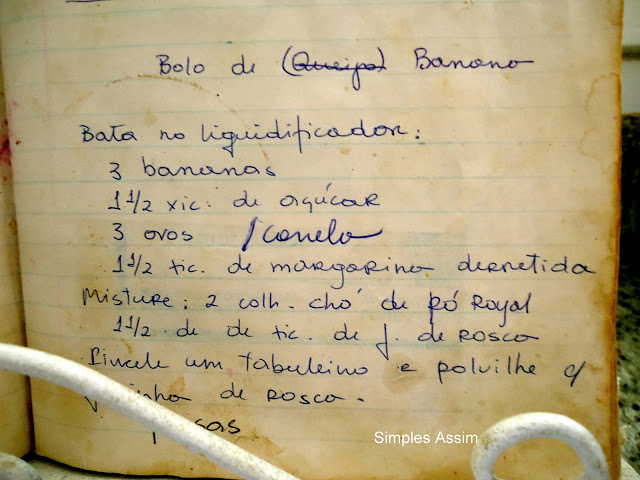 Bolo de (Queijo) Banana
Bata no liquidificador:
3 bananas
1 1/2 xic. de açúcar
3 ovos /canela
1 1/2 tic. de margarina derretida
Misture: 2 colh. chá de pó Royal
1 1/2 de de tic. de f. de rosca
Pincele um tabuleiro e polvilhe c/
de rosca.
Simples Assim